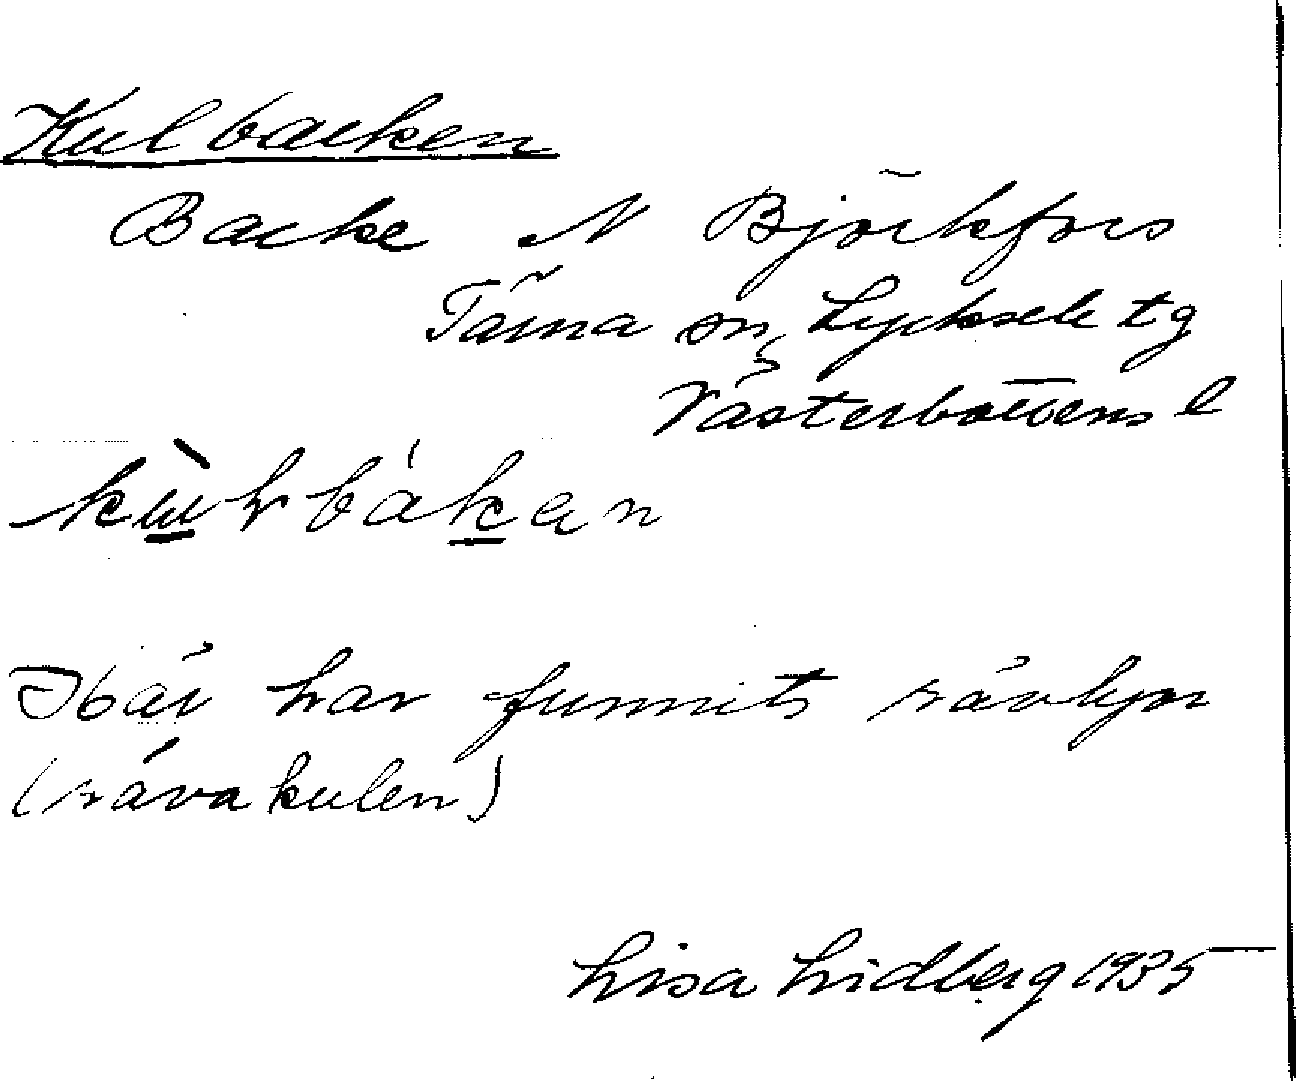 Kulbacken
Backe N Björkfors
Tärna sn, Lycksele tg
Västerbottens l
Här har funnits rävlyor
(rävakulen)
Lisa Lidberg 1935